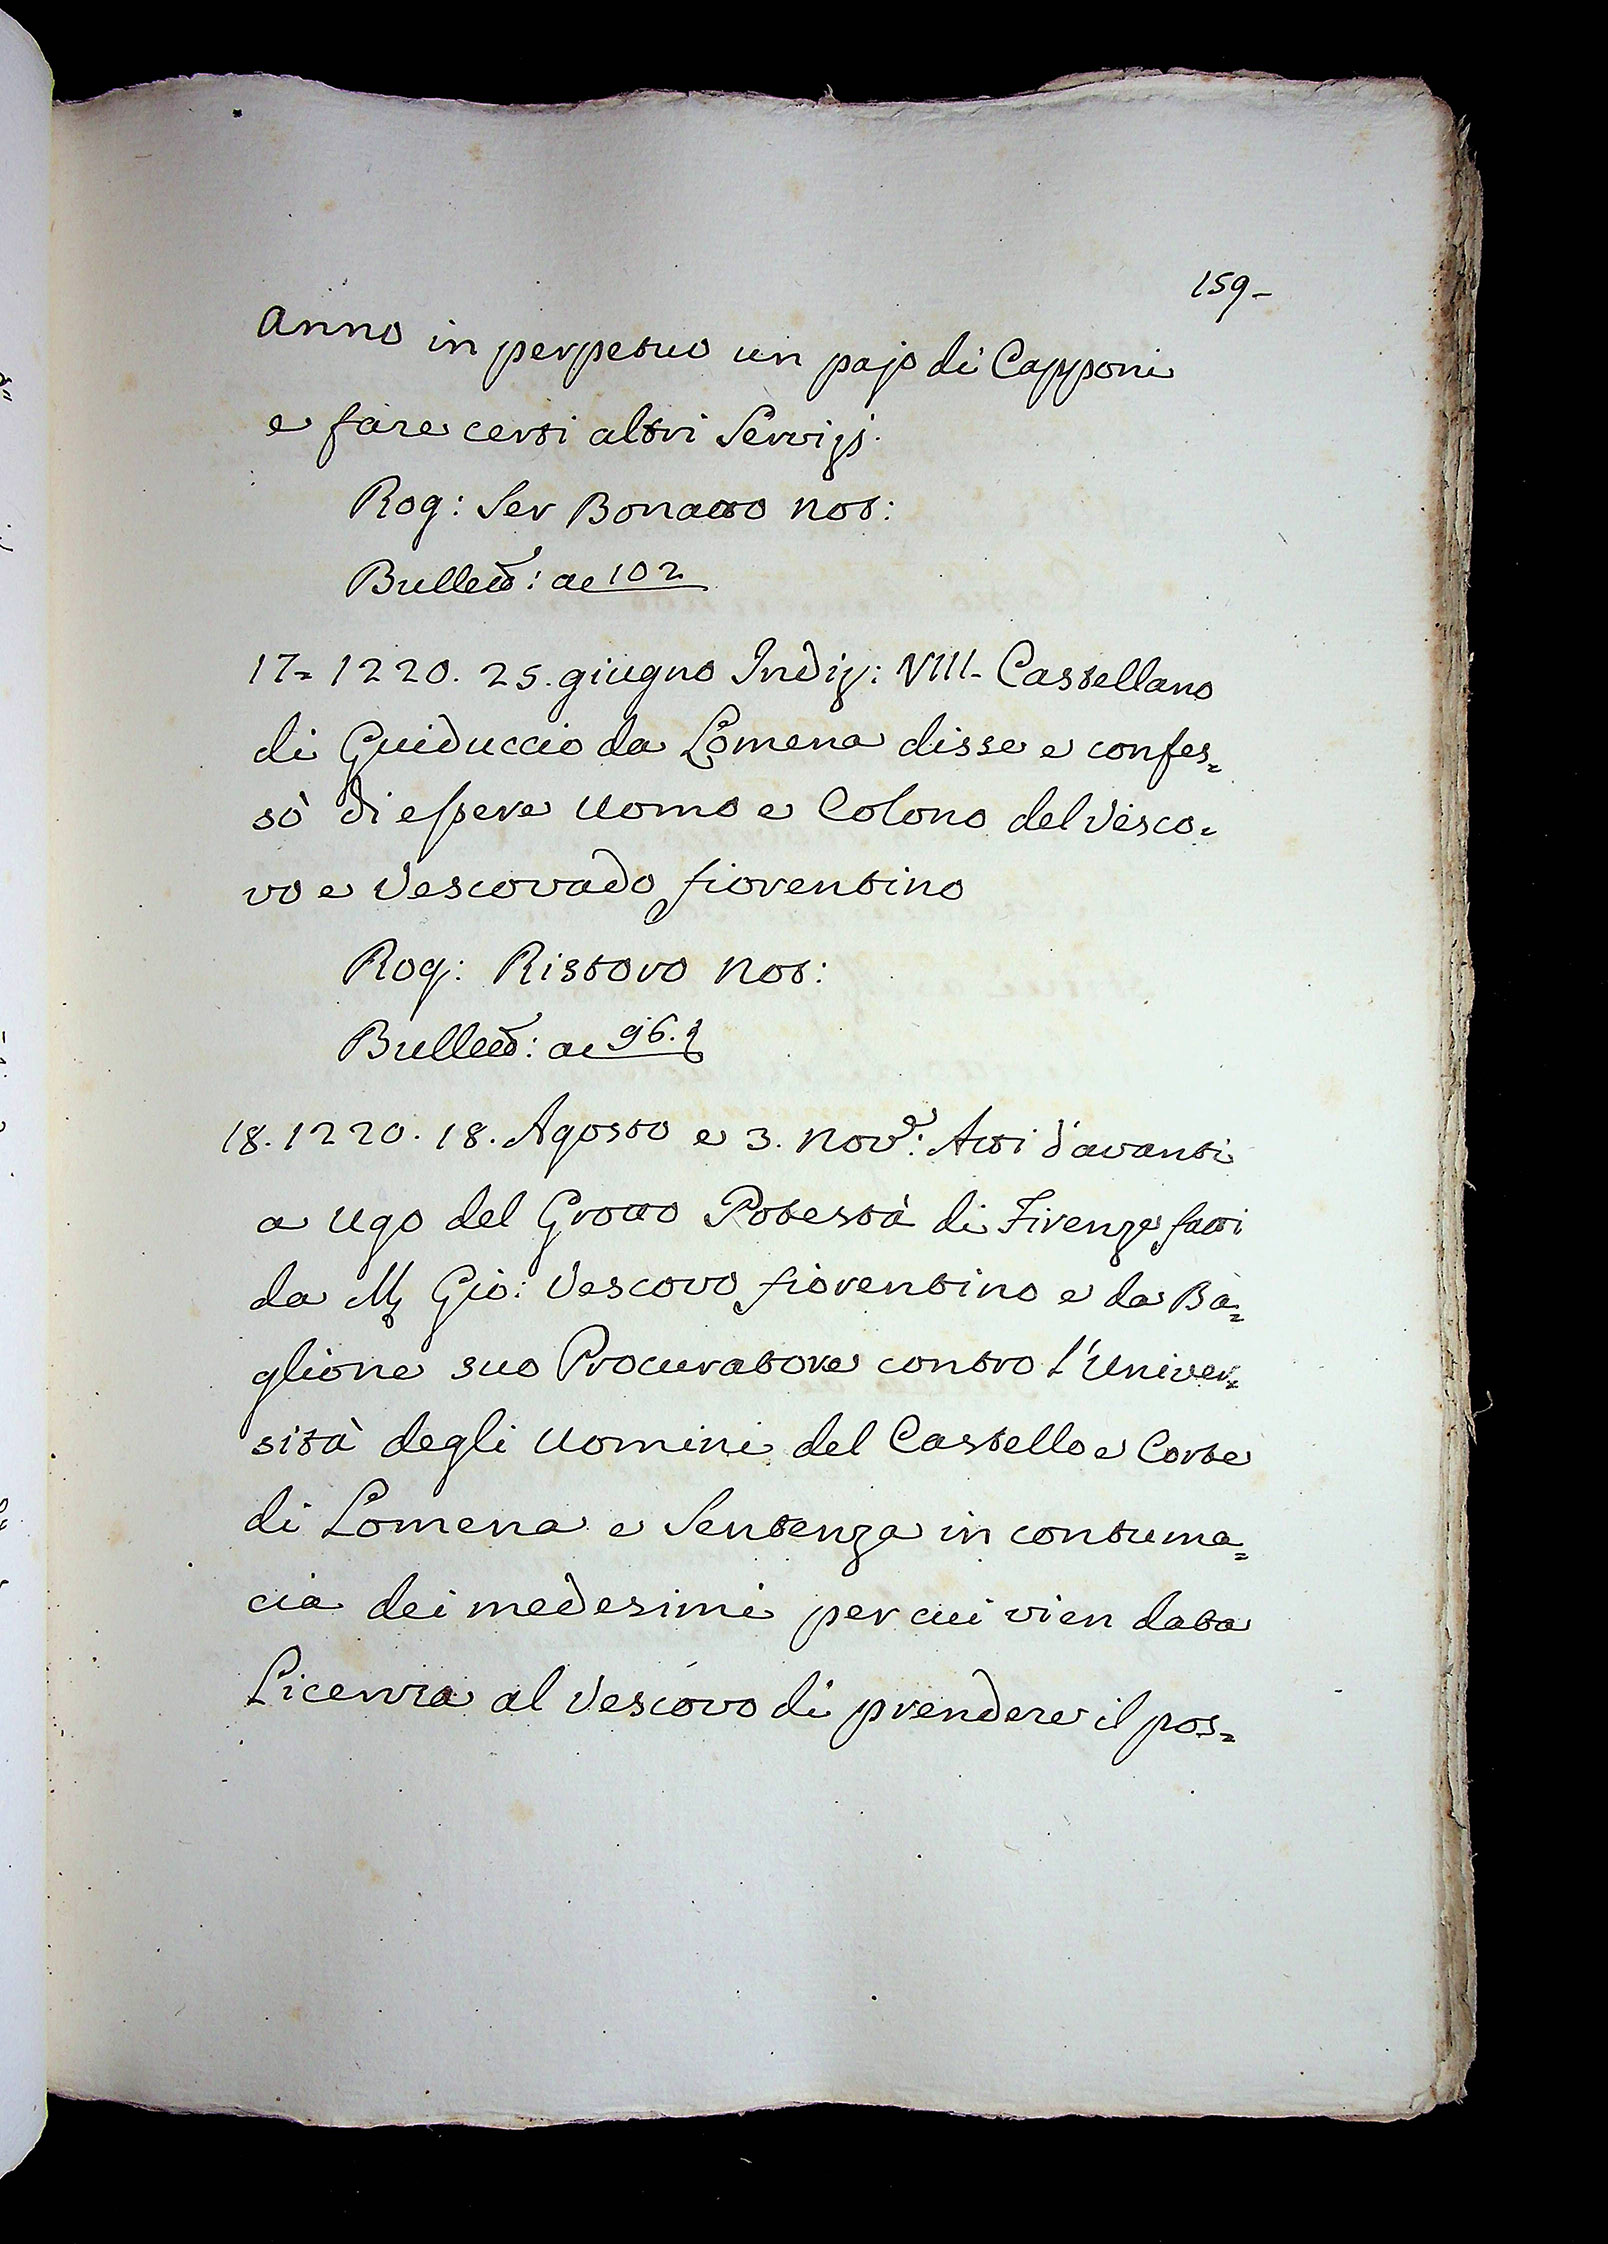 159-
anno in perpetuo un pajo di Capponi
e fare certi altri Servizj.
Rog: Ser Bonatto not:
Bullett: a 102
17= 1220. 25. giugno Indiz: VIII- Castellano
di Guiduccio da Lomena disse e confes=
sò di essere uomo e Colono del Vesco=
vo e Vescovado fiorentino
Rog: Ristoro not:
Bullett: a 96.
18. 1220. 18. Agosto e 3. Nov.e: Atti d'avanti
a Ugo del Grotto Potestà di Firenze fatti
da M. Gio: Vescovo fiorentino e da Ba=
glione suo Procuratore contro l'Univer=
sità degli Uomini del Castello e Corte
di Lomena e Sentenza in contuma=
cia dei medesimi per cui vien data
Licenza al Vescovo di prendere il pos=